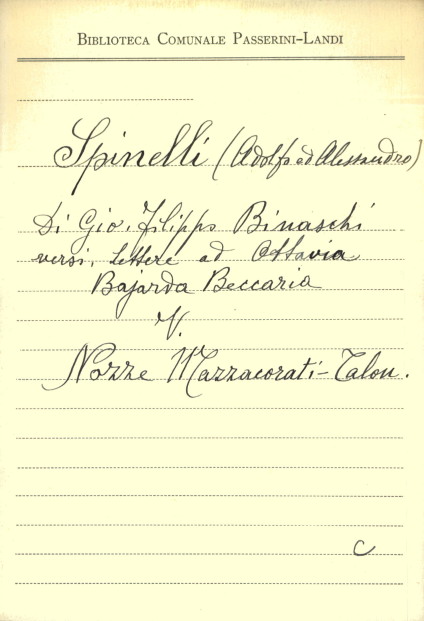 Biblioteca Comunale Passerini-Landi
Spinelli (Adolfo ed Alessandro)
Di Gio. Filippo Binaschi
versi. Lettere ad Ottavia
Bajarda Beccaria
V.
Nozze Mazzacorati-Talon.
C